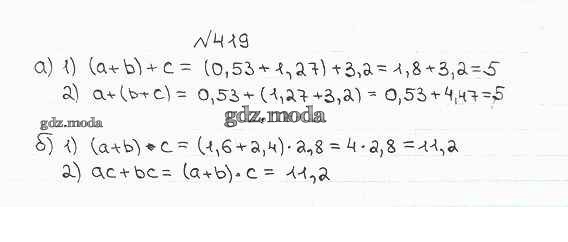 №419
а) 1) (a+b)+c = (0,53+1,27)+3,2=1,8+3,2=5
2) a+(b+c) = 0,53+(1,27+3,2) = 0,53+4,47=5
gdz.moda
gdz.moda
б) 1) (a+b)•c = (1,6+2,4)·2,8=4·2,8=11,2
2) ac+bc= (a+b)·c = 11,2